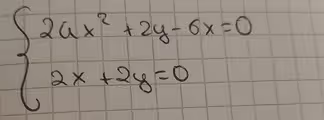 2ax² + 2y - 6x = 0
2x + 2y = 0